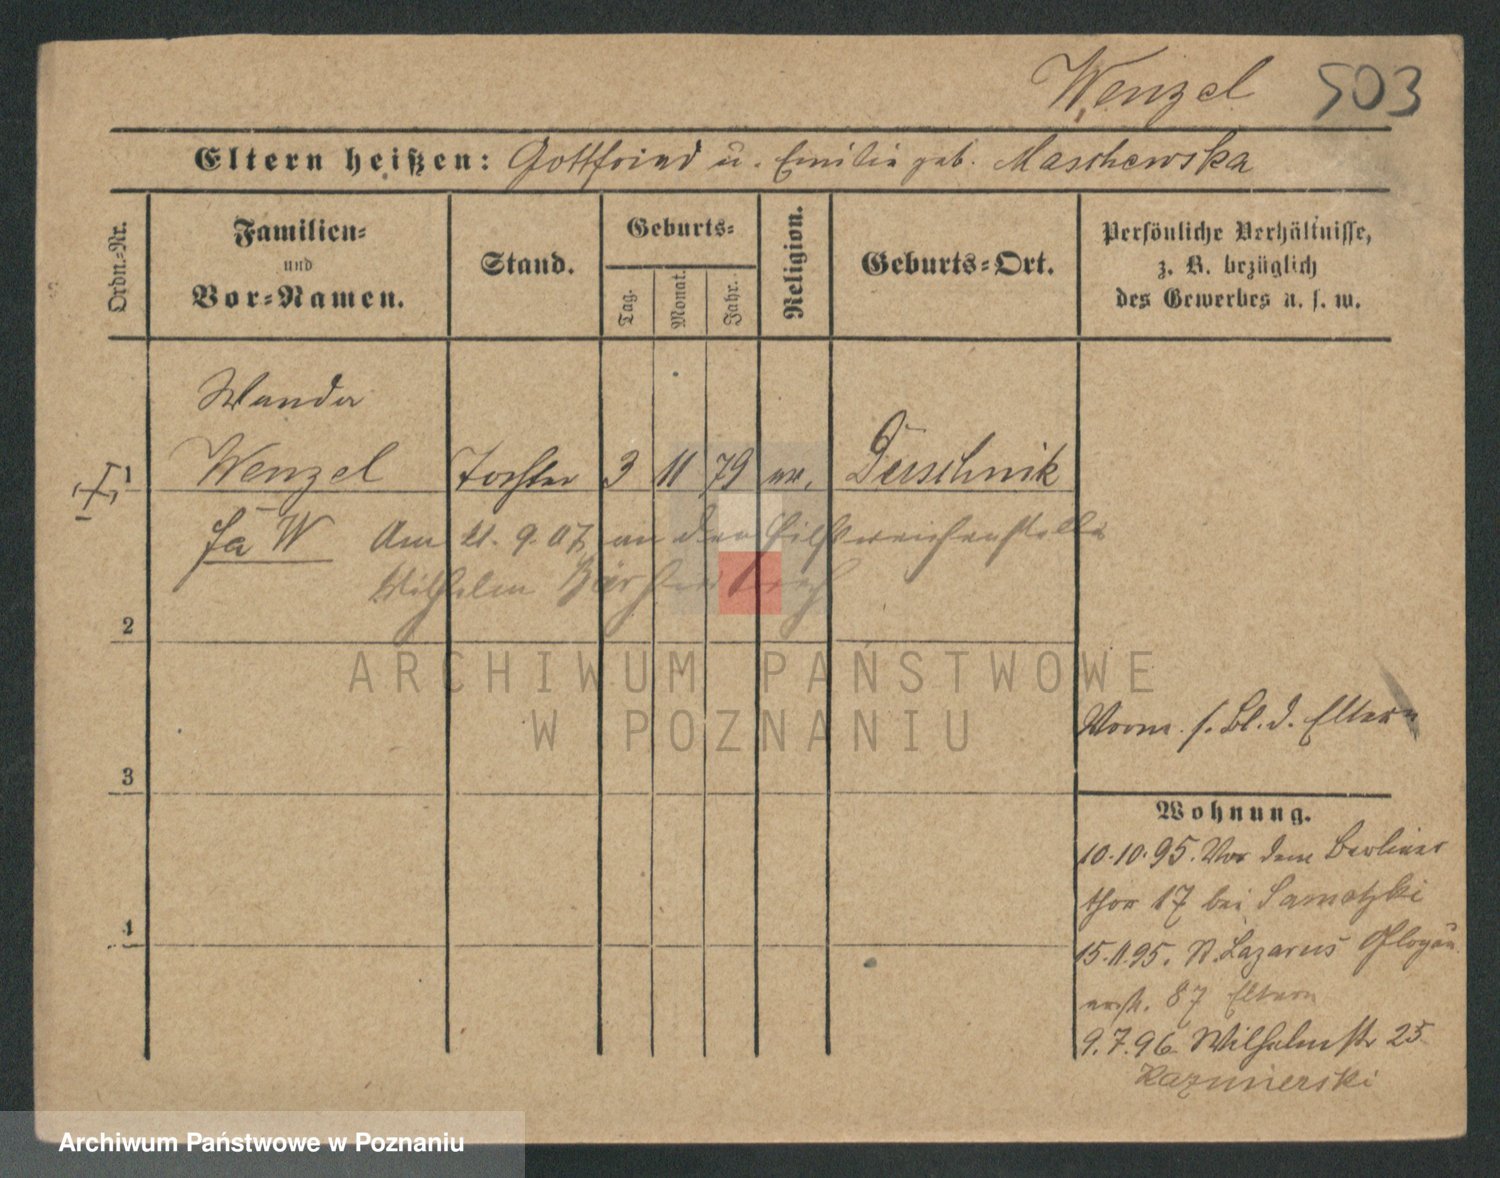 Wenzel 503
Eltern heißen: Gottfried u. Emilie geb. Maschewska
Ordn.-Nr.
Familien-
und
Vor-Namen.
Stand.
Geburts-
Tag.
Monat.
Jahr.
Religion.
Geburts-Ort.
Persönliche Verhältnisse,
z. B. bezüglich
des Gewerbes u. s. w.
Wanda
1 Wenzel Tochter 3 11 79 ev. Derschnik
W Am 21. 9. 07 an
Wilhelm
2
ARCHIWUM PAŃSTWOWE
W POZNANIU
Vorm. s. Bl. d. Eltern
3
Wohnung.
10.10.95. Vor dem Berliner
thor 17 bei Samotzki
4
15.11.95. St. Lazarus Glogau
erstr. 87 Eltern
9.7.96 Wilhelmstr 25
Kazmierski
Archiwum Państwowe w Poznaniu